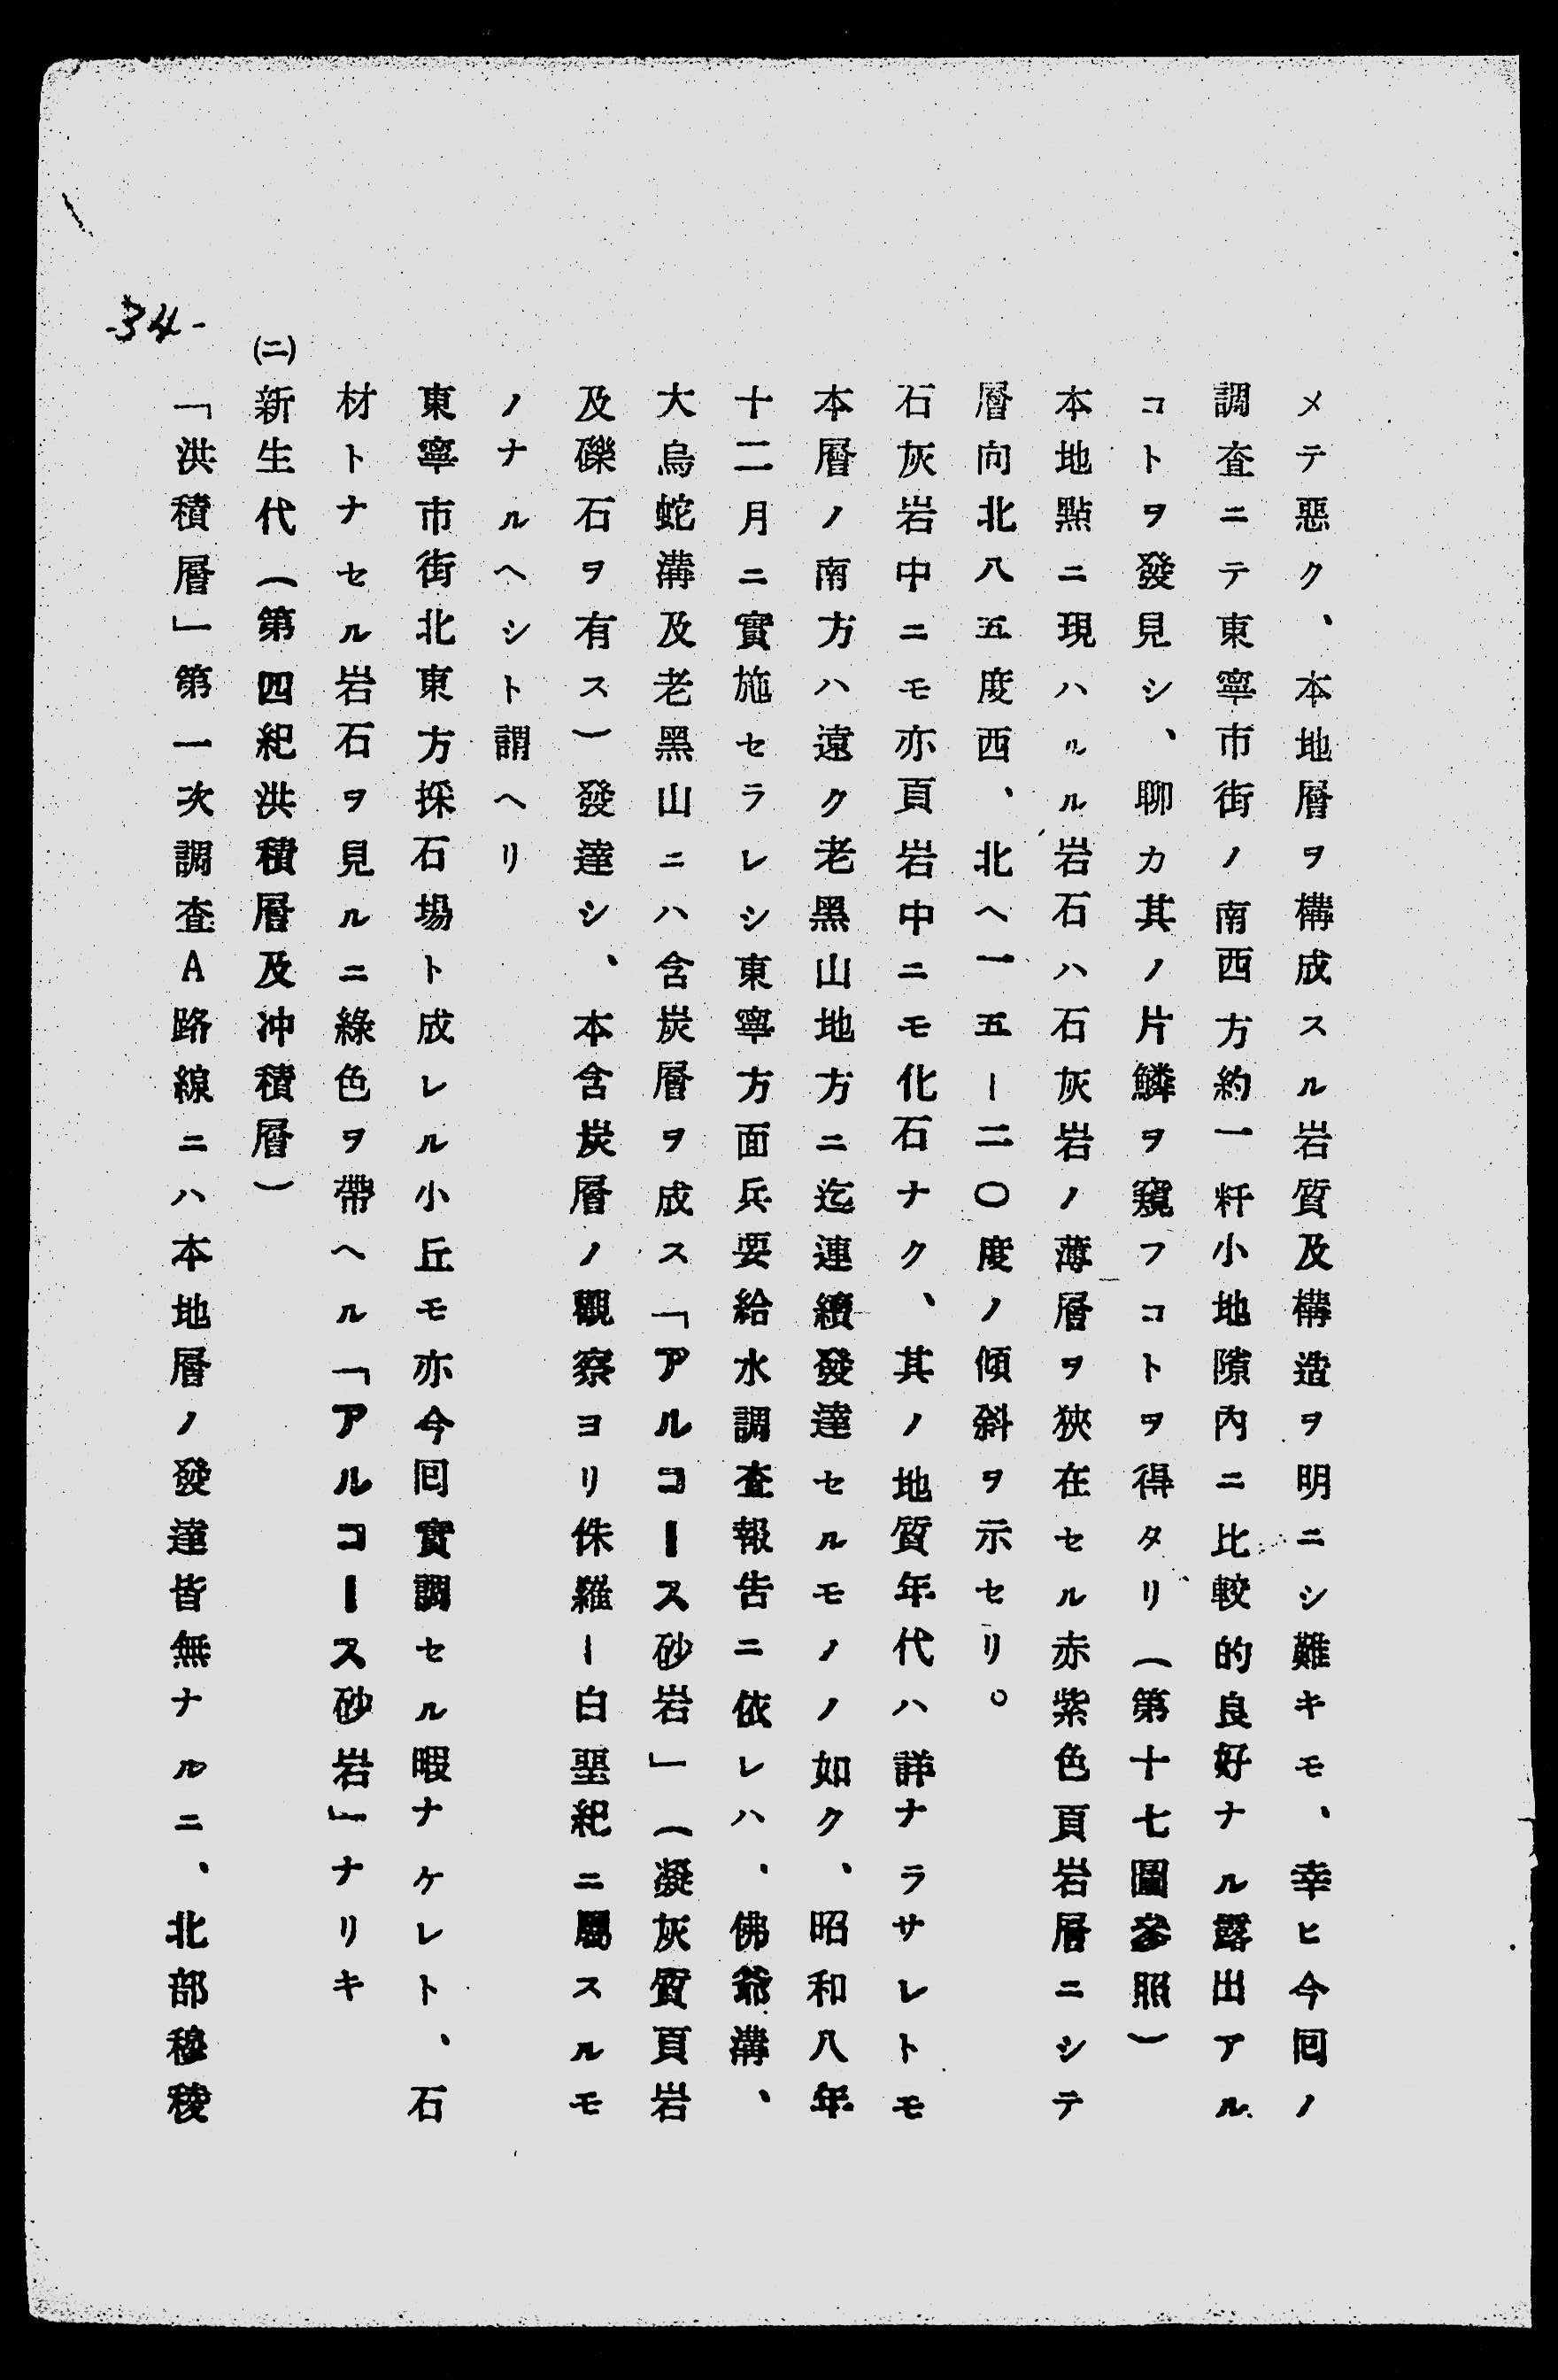 メテ惡ク、本地層ヲ構成スル岩質及構造ヲ明ニシ難キモ、幸ヒ今回ノ
調査ニテ東寧市街ノ南西方約一粁小地隙內ニ比較的良好ナル露出アル
コトヲ發見シ、聊カ其ノ片鱗ヲ窺フコトヲ得タリ（第十七圖參照）
本地點ニ現ハルル岩石ハ石灰岩ノ薄層ヲ狹在セル赤紫色頁岩層ニシテ
層向北八五度西、北ヘ一五ー二〇度ノ傾斜ヲ示セリ。
石灰岩中ニモ亦頁岩中ニモ化石ナク、其ノ地質年代ハ詳ナラサレトモ
本層ノ南方ハ遠ク老黑山地方ニ迄連續發達セルモノノ如ク、昭和八年
十二月ニ實施セラレシ東寧方面兵要給水調査報告ニ依レハ、佛爺溝、
大烏蛇溝及老黑山ニハ含炭層ヲ成ス「アルコース砂岩」（凝灰質頁岩
及礫石ヲ有ス）發達シ、本含炭層ノ觀察ヨリ侏羅ー白堊紀ニ屬スルモ
ノナルヘシト謂ヘリ
東寧市街北東方採石場ト成レル小丘モ亦今回實調セル暇ナケレト、石
材トナセル岩石ヲ見ルニ綠色ヲ帶ヘル「アルコース砂岩」ナリキ
(二)新生代（第四紀洪積層及冲積層）
「洪積層」第一次調査A路線ニハ本地層ノ發達皆無ナルニ、北部穆稜
-34-